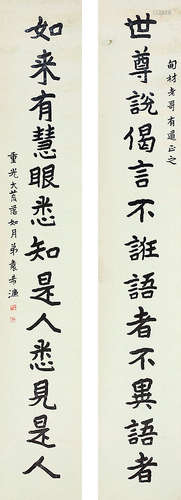 旬材老哥有道正之
世尊說偈言不誑語者不異語者
如来有慧眼悉知是人悉見是人
重光大荒落如月弟袁希濂